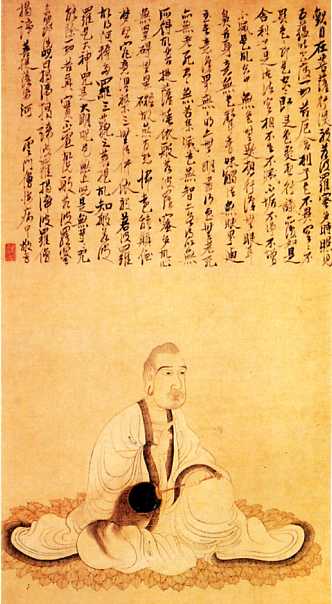 觀自在菩薩行深般若波羅蜜多時照見
五蘊皆空度一切苦厄舍利子色不異空空不
異色色即是空空即是色受想行識亦復如是
舍利子是諸法空相不生不滅不垢不淨不增
不減是故空中無色無受想行識無眼耳鼻
舌身意無色聲香味觸法無眼界迺
至無意識界無無明亦無無明盡乃至無老死
亦無老死盡無苦集滅道無智亦無得以無
所得故菩提薩埵依般若波羅蜜多故心
無罣礙無罣礙故無有恐怖遠離顛倒
夢想究竟涅槃三世諸佛依般若波羅
蜜多故得阿耨多羅三藐三菩提故知般若波
羅蜜多是大神咒是大明咒是無上咒是無等
等咒能除一切苦真實不虛故說般若波羅蜜
多咒即說咒曰揭諦揭諦波羅揭諦波羅僧
揭諦菩提薩婆訶 雲門僧